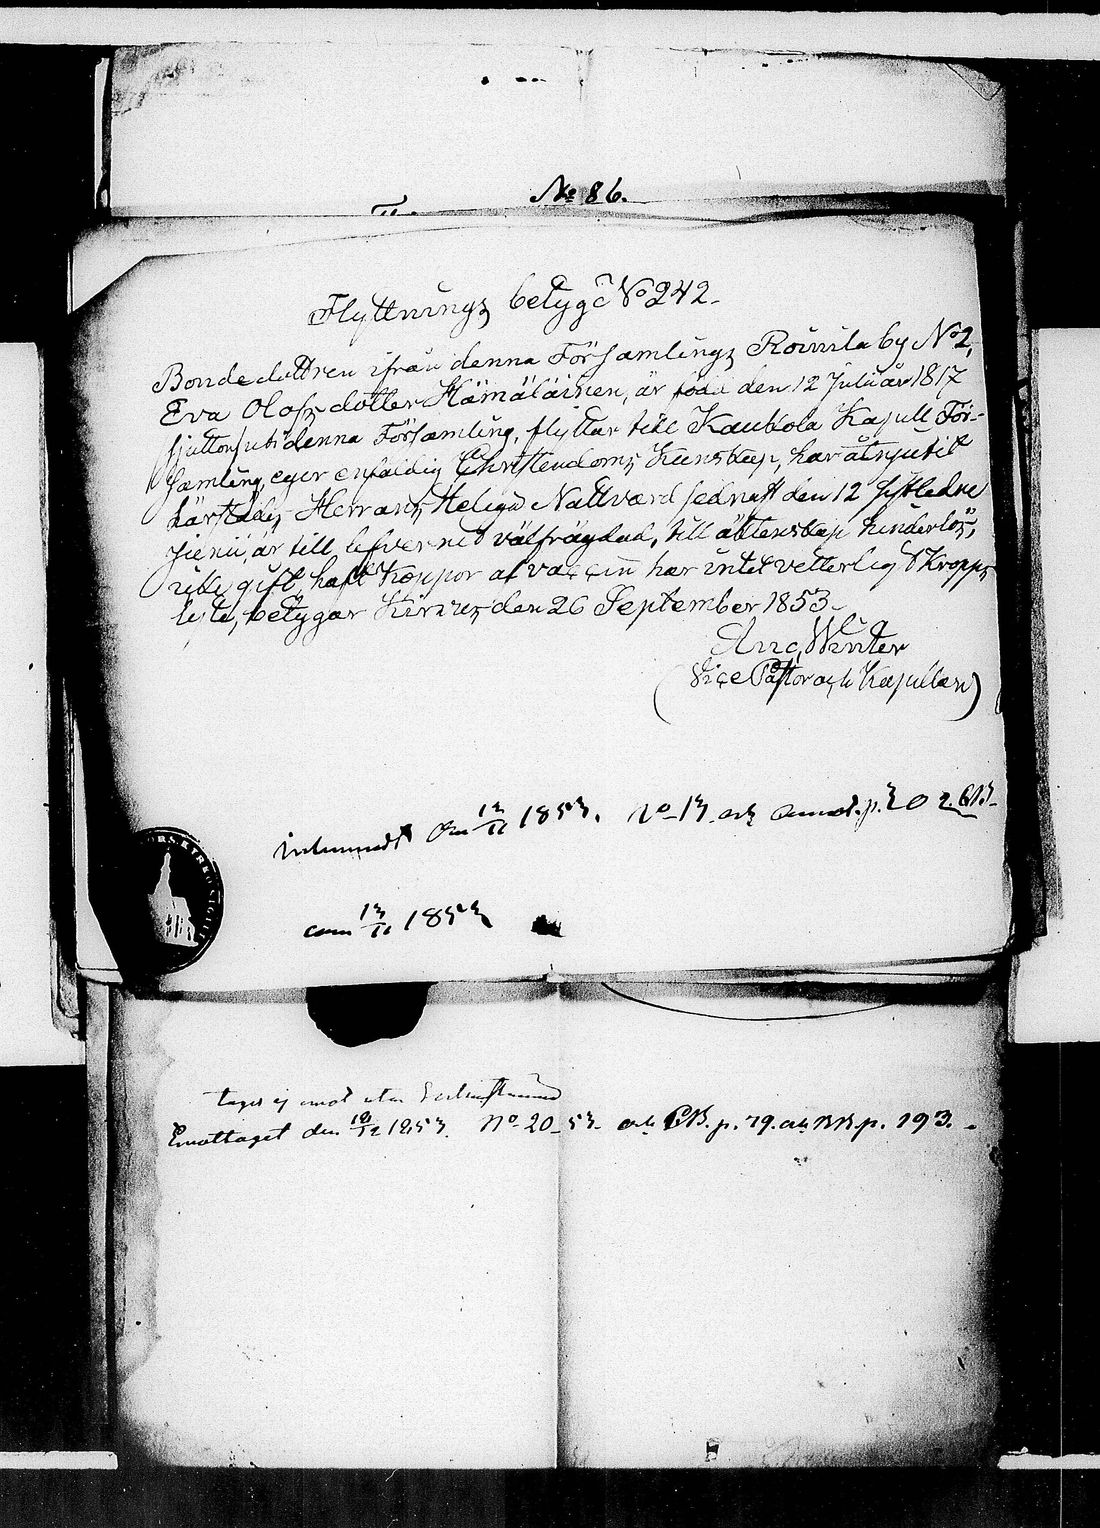 No 86.
Flyttnings betyg No 242.
Bondedottren ifrån denna Församlings Roinila by No 2,
Eva Olofsdotter Hämäläinen, är född den 12 Julii år 1817
sjutton uti denna Församling, flyttar till Kaukola Kapell För-
samling, eger enfaldig Christendoms Kunskap, har åtnjutit
härstädes Herrans Heliga Nattvard sednast den 12 sistledne
Junii, är till lefvernet välfrägdad, till äktenskap hinderlös,
icke gift, haft Koppor af vaccin har intet vetterligt Kropps
lyte, betygar Kirvus den 26 September 1853.
Winter
(Vice Pastor och Kapellan)
den 13/11 1853. No 13 och annot. p.
13/11 1853
KYRKO SIGILL
tages ej emot utan
Emottaget den 18/12 1853. No 20 53 och CB. p. 79. och p. 193.